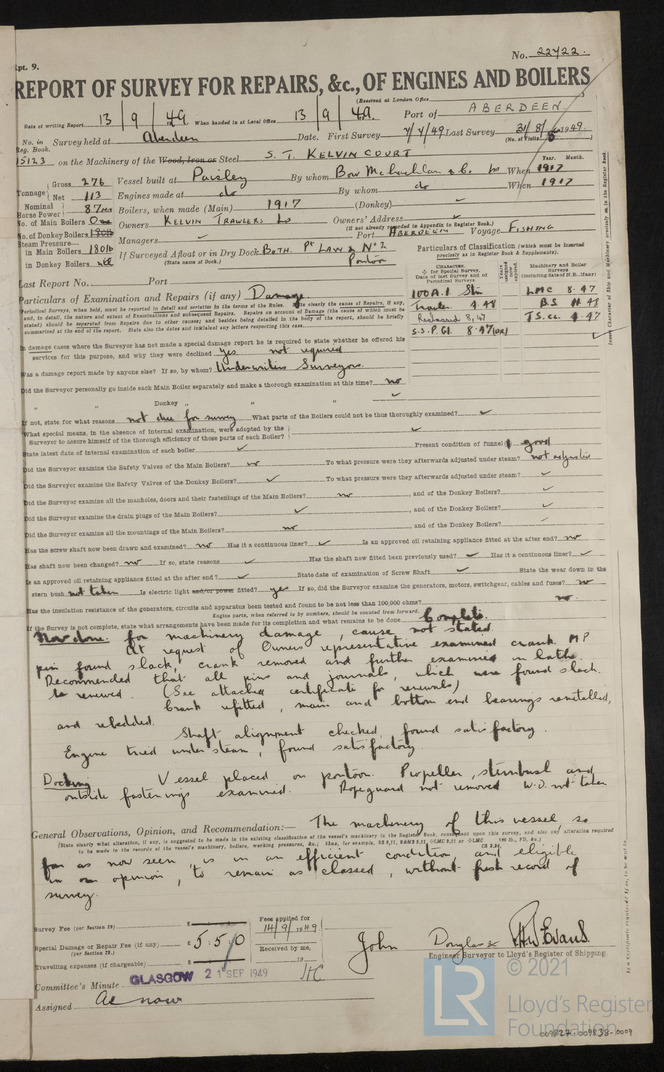 Rpt. 9.
No. 22422.
REPORT OF SURVEY FOR REPAIRS, &c., OF ENGINES AND BOILERS
(Received at London Office
Date of writing Report 13 / 9 / 49 When handed in at Local Office 13 / 9 / 49. Port of ABERDEEN
No. in Reg. Book. Survey held at Aberdeen Date. First Survey 7/4/49 Last Survey 31/8/1949.
(No. of Visits)
15123 on the Machinery of the Wood, Iron or Steel S.T. KELVIN COURT
Year. Month.
Tonnage Gross 276 Vessel built at Paisley By whom Bow McLachlan & Co. Ld When 1917
Net 113 Engines made at do By whom do When 1917
Nominal Horse Power 87 Boilers, when made (Main) 1917 (Donkey)
No. of Main Boilers One Owners KELVIN TRAWLERS Ld Owners' Address
(if not already recorded in Appendix to Register Book.)
No. of Donkey Boilers Managers Port ABERDEEN Voyage FISHING
Steam Pressure
in Main Boilers 180 lb If Surveyed Afloat or in Dry Dock BOTH. Pt LAW & No 2 Pontoon
in Donkey Boilers nil (State name of Dock.)
Particulars of Classification (which must be inserted precisely as in Register Book & Supplements).
Last Report No. Port
CHARACTER.
Machinery and Boiler Surveys
100A1 Stm LMC 8.47
Trawler 4.48 BS 4.47
8.47 T.S.CL 4.47
S.S.P.GL 8.47
Particulars of Examination and Repairs (if any) Damage
In damage cases where the Surveyor has not made a special damage report he is required to state whether he offered his
services for this purpose, and why they were declined yes not required
Was a damage report made by anyone else? If so, by whom? Underwriters Surveyors
Did the Surveyor personally go inside each Main Boiler separately and make a thorough examination at this time? no
" " Donkey " " "
If not, state for what reasons not due for survey What parts of the Boilers could not be thus thoroughly examined?
What special means, in the absence of internal examination, were adopted by the
Surveyor to assure himself of the thorough efficiency of those parts of each Boiler?
State latest date of internal examination of each boiler Present condition of funnel good
Did the Surveyor examine the Safety Valves of the Main Boilers? no To what pressure were they afterwards adjusted under steam? not adjusted
Did the Surveyor examine the Safety Valves of the Donkey Boilers? To what pressure were they afterwards adjusted under steam?
Did the Surveyor examine all the manholes, doors and their fastenings of the Main Boilers? no , and of the Donkey Boilers?
Did the Surveyor examine the drain plugs of the Main Boilers? , and of the Donkey Boilers?
Did the Surveyor examine all the mountings of the Main Boilers? no , and of the Donkey Boilers?
Has the screw shaft now been drawn and examined? no Has it a continuous liner? Is an approved oil retaining appliance fitted at the after end? no
Has shaft now been changed? no If so, state reasons Has the shaft now fitted been previously used? Has it a continuous liner?
Is an approved oil retaining appliance fitted at the after end? State date of examination of Screw Shaft State the wear down in the
stern bush not taken Is electric light and/or power fitted? yes If so, did the Surveyor examine the generators, motors, switchgear, cables and fuses? no
Has the insulation resistance of the generators, circuits and apparatus been tested and found to be not less than 100,000 ohms? no.
Engine parts, when referred to by numbers, should be counted from forward.
If the Survey is not complete, state what arrangements have been made for its completion and what remains to be done Complete.
Now done. for machinery damage, cause not stated
At request of Owners representative examined crank MP
pin found slack, crank removed and further examined in lathe.
Recommended that all pins and journals, which were found slack
be renewed. (See attached certificate for renewals)
Crank refitted, main and bottom end bearings remetalled,
and rebedded.
Shaft alignment checked, found satisfactory.
Engine tried under steam, found satisfactory.
Docking Vessel placed on pontoon. Propeller, sternbush and
outside fastenings examined. Ropeguard not removed W.D. not taken
General Observations, Opinion, and Recommendation:— The machinery of this vessel so
(State clearly what alteration, if any, is suggested to be made in the existing classification of the vessel's machinery in the Register Book, consequent upon this survey, and also any alteration required
far as now seen, is in an efficient condition and eligible
in our opinion, to remain as classed, without fresh record of
survey.
Survey Fee (per Section 29) £
Fees applied for
14/9/1949
Special Damage or Repair Fee (if any) £ 5.5.0
(per Section 29.)
Received by me,
Travelling expenses (if chargeable) £
John Douglas & H.W. Evans
Engineer Surveyor to Lloyd's Register of Shipping
Committee's Minute GLASGOW 21 SEP 1949
Assigned As now
LR
© 2021
Lloyd's Register
Foundation
009827-009838-0009